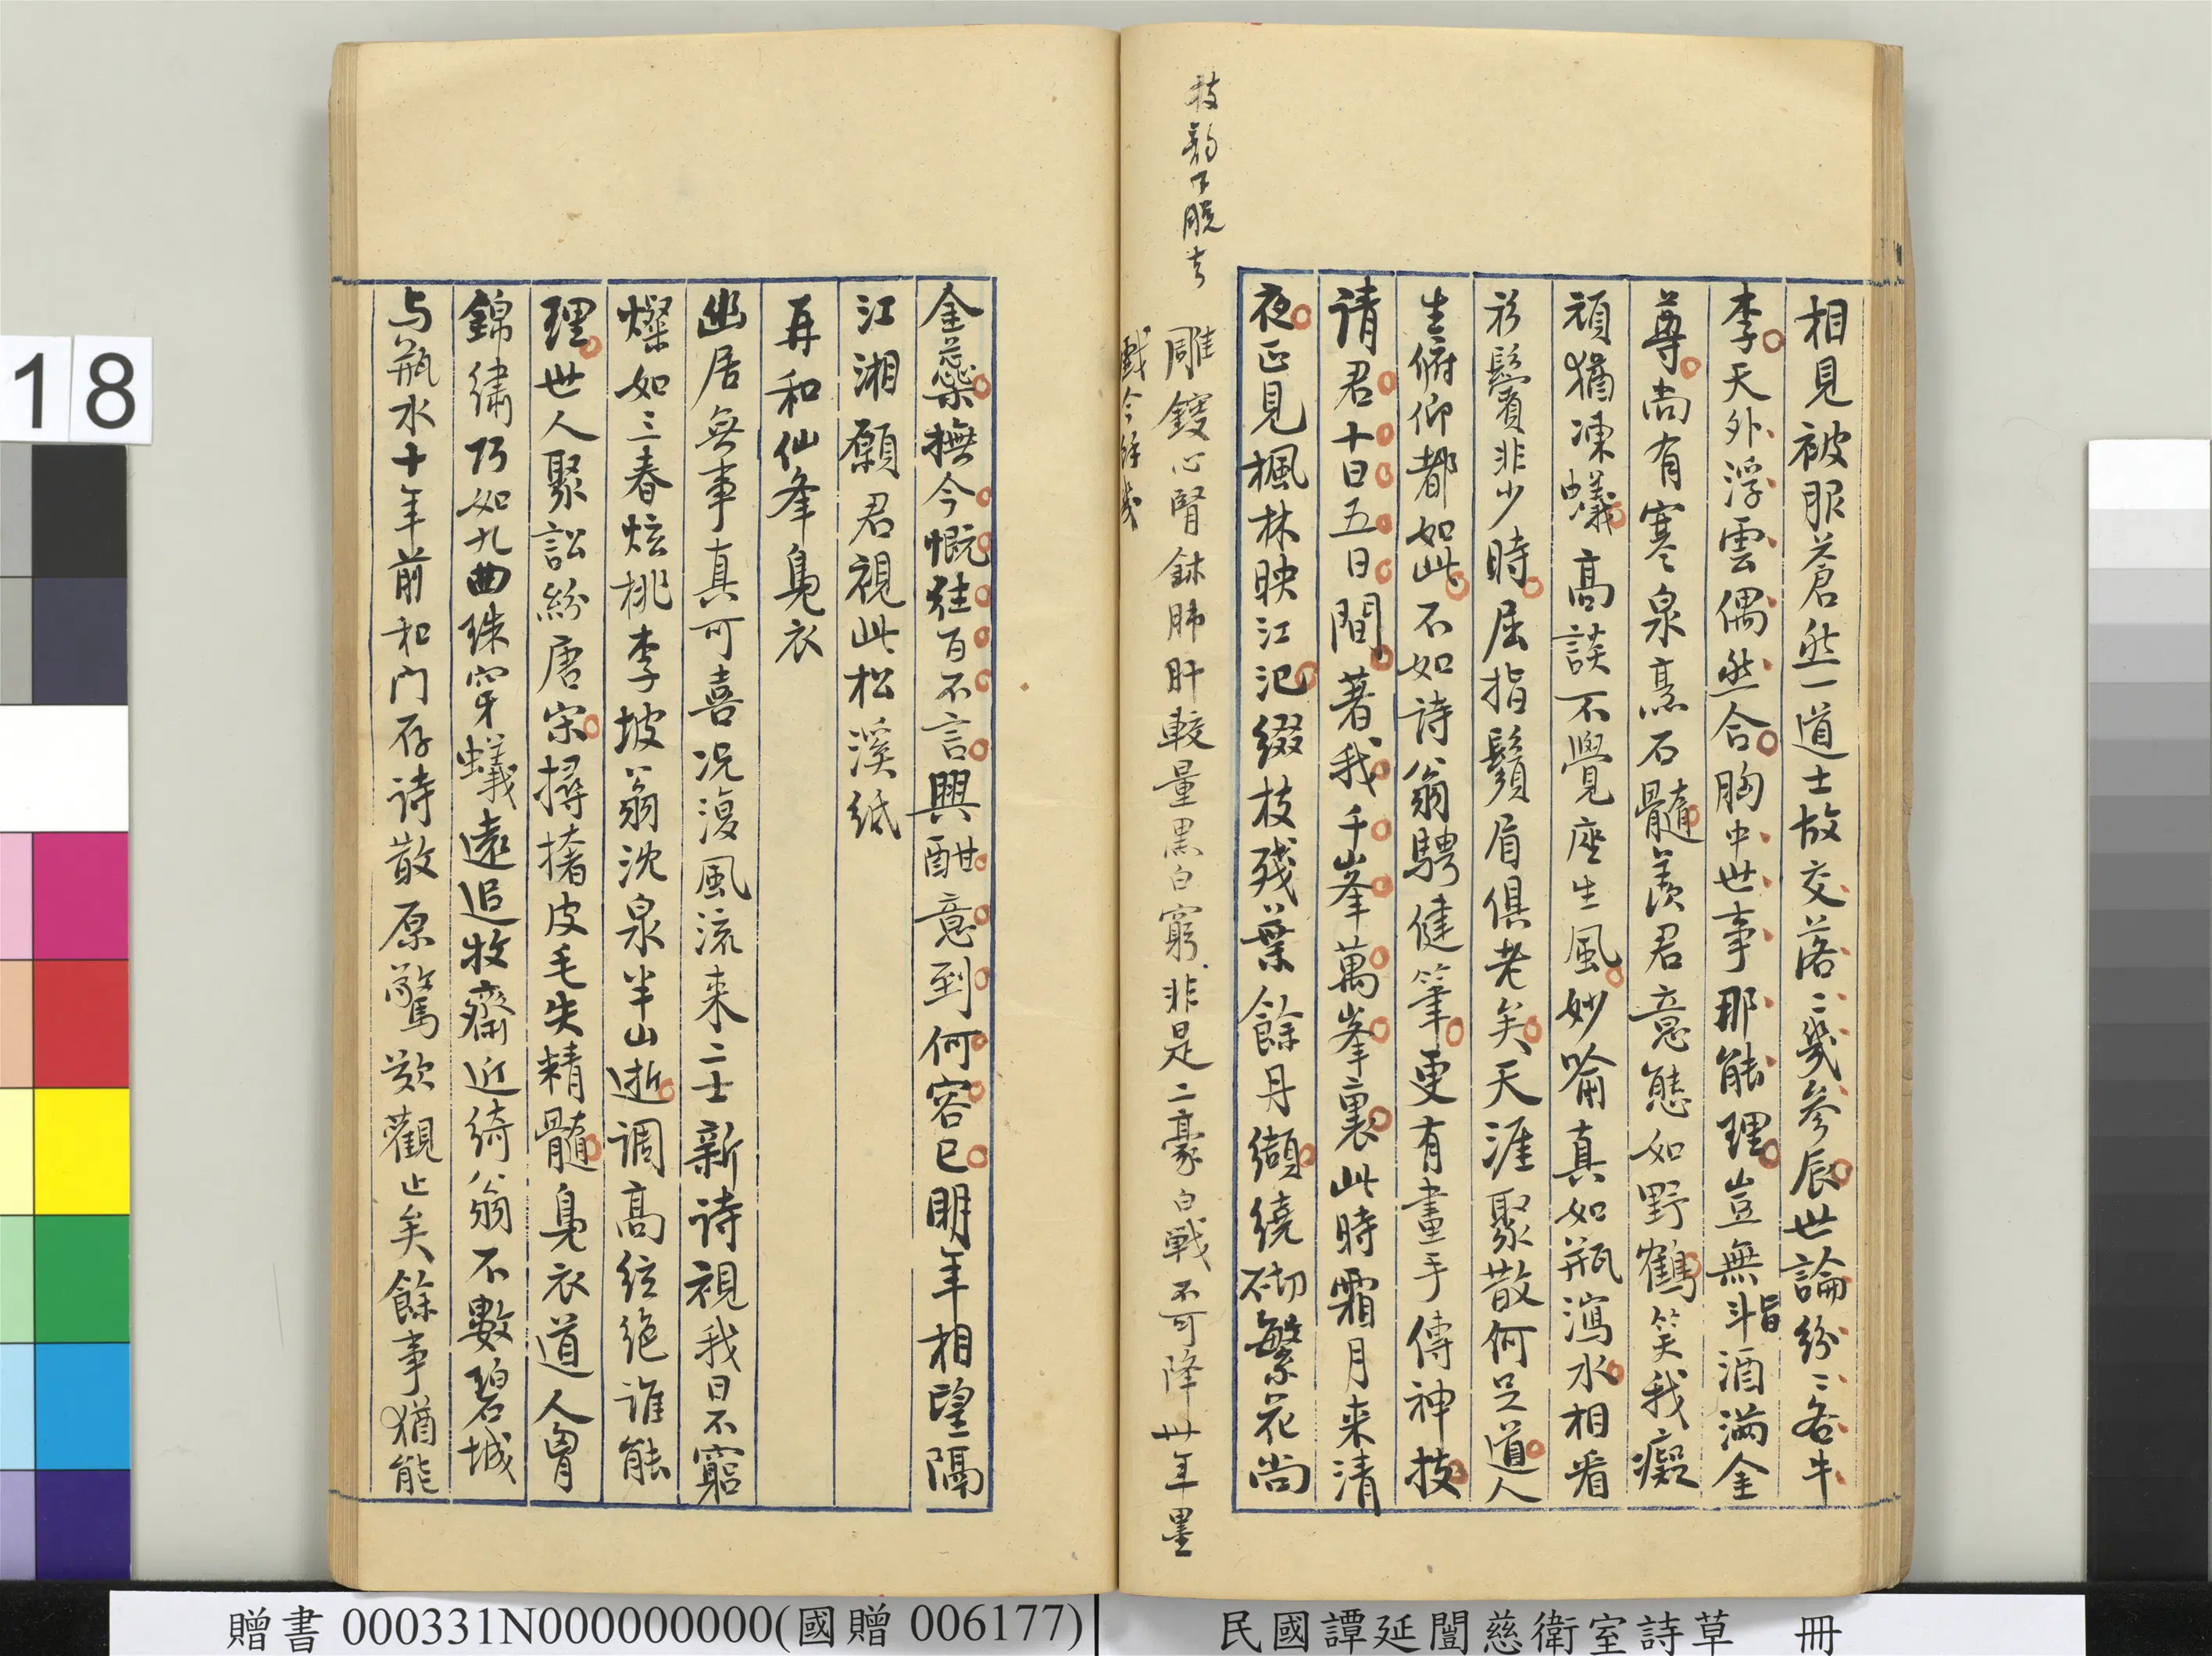 相見被服蒼然一道士故交落〻幾參辰世論紛〻各牛
李天外浮雲偶然合胸中世事那能理豈無斗酒滿金
旨
尊尚有寒泉烹石髓羨君意態如野鶴笑我癡
頑猶凍蟻高談不覺座生風妙喻真如瓶瀉水相看
衫鬢非少時屈指鬚眉俱老矣天涯聚散何足道人
生俯仰都如此不如詩翁騁健筆更有畫手傳神技
請君十日五日間著我千峯萬峯裏此時霜月来清
夜正見楓林映江汜綴枝殘葉餘丹纈繞砌繁花尚
技韵不脱
雕鎪心腎鉥肺肝較量黑白窮非是二豪白戰不可降廿年墨
戲今餘幾
金蘂撫今慨往百不言興酣意到何容已明年相望隔
江湘願君視此松溪紙
再和仙峯鳧衣
幽居無事真可喜况復風流来二士新詩視我日不窮
燦如三春炫桃李坡翁沈泉半山逝調高絃絶誰能
理世人聚訟紛唐宋撏撦皮毛失精髓鳧衣道人胃
錦繡巧如九曲珠穿蟻遠追牧齋近綺翁不數碧城
与瓶水十年前和門存詩散原驚歎觀止矣餘事猶能
18
贈書 000331N000000000(國贈 006177)
民國譚延闓慈衛室詩草 冊